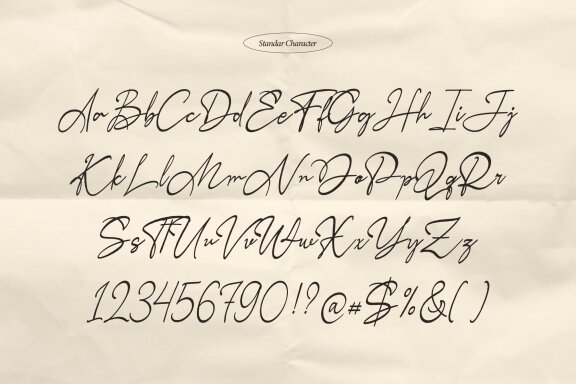 Standar Character
AaBbCcDdEeFfGgHhIiJj
KkLlMmNnOoPpQqRr
SsTtUuVvWwXxYyZz
1234567890!?@#$%&()